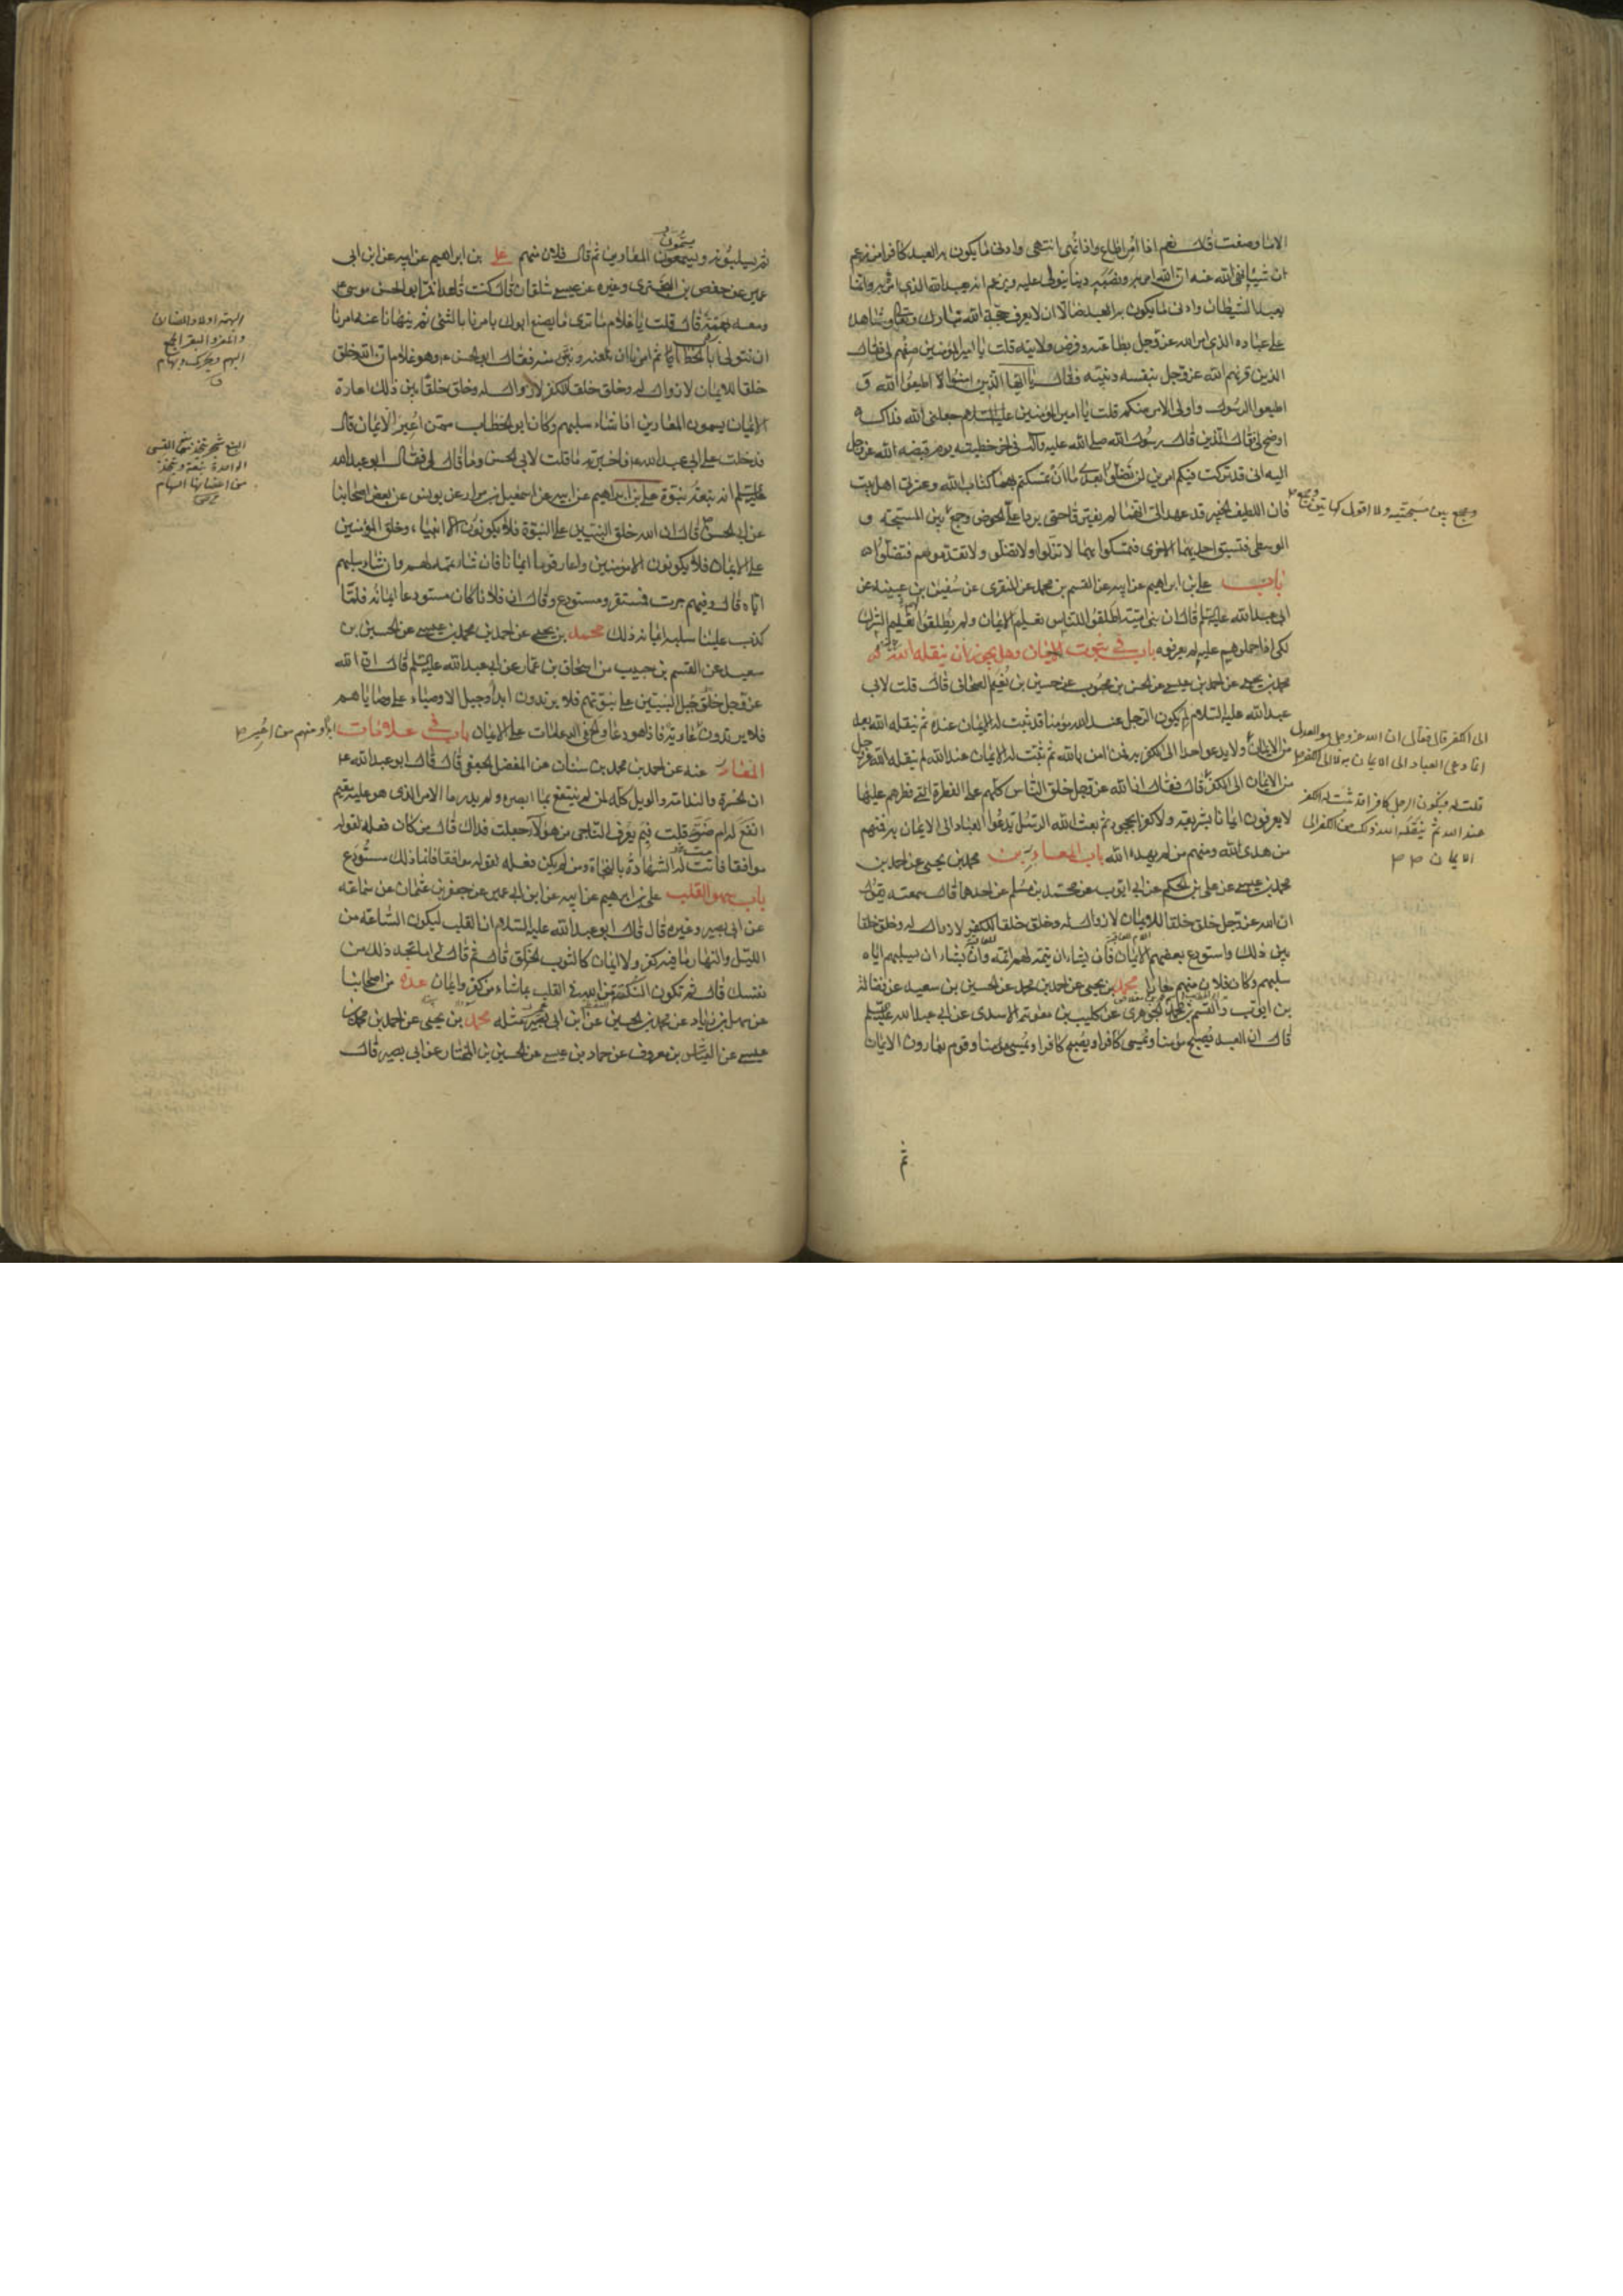 الا ما وصفت قال نعم اذا امر اطاع واذا نهى انتهى وادنى ما يكون به العبد كافرا من زعم
ان شيئا نهى الله عنه ان الله امر به ونصبه دينا يتولى عليه ويزعم انه يعبد الله الذي امره به وانما
يعبد الشيطان وادنى ما يكون به العبد ضالا ان لا يعرف حجة الله تبارك وتعالى وشاهده
على عباده الذي امر الله عز وجل بطاعته وفرض ولايته قلت يا امير المؤمنين صفهم لي فقال
الذين قرنهم الله عز وجل بنفسه ونبيه فقال يا ايها الذين امنوا اطيعوا الله و
اطيعوا الرسول واولى الامر منكم قلت يا امير المؤمنين جعلني الله فداك
اوضح لي فقال الذين قال رسول الله صلى الله عليه وآله في اخر خطبته يوم قبضه الله عز وجل
اليه اني قد تركت فيكم امرين لن تضلوا بعدي ما ان تمسكتم بهما كتاب الله وعترتي اهل بيتي
فان اللطيف الخبير قد عهد الى انهما لن يفترقا حتى يردا على الحوض وجمع بين المسبحة و
الوسطى فتسبق احديهما الاخرى فتمسكوا بهما لا تزلوا ولا تضلوا ولا تقدموهم فتضلوا
باب علي بن ابراهيم عن ابيه عن القسم بن محمد عن المنقري عن سفين بن عيينه عن
ابى عبد الله عليه السلم قال ان بنى امية اطلقوا للناس تعليم الايمان ولم يطلقوا تعليم الشرك
لكى اذا حملوهم عليه لم يعرفوه باب في ثبوت الايمان وهل يجوز ان ينقله الله
محمد بن يحيى عن احمد بن محمد بن عيسى عن الحسن بن محبوب عن حسين بن نعيم الصحاف قال قلت لابي
عبد الله عليه السلام لم يكون الرجل عند الله مؤمنا قد ثبت له الايمان عنده ثم ينقله الله بعد
من الايمان ولا يدعو احدا الى الكفر به فمن امن بالله ثم ثبت له الايمان عند الله لم ينقله الله عز وجل
من الايمان الى الكفر قال فقال ان الله عز وجل خلق الناس كلهم على الفطرة التي فطرهم عليها
لا يعرفون ايمانا بشريعة ولا كفرا بجحود ثم بعث الله الرسل تدعوا العباد الى الايمان به فمنهم
من هدى الله ومنهم من لم يهده الله باب المعارين محمد بن يحيى عن احمد بن
محمد بن عيسى عن علي بن الحكم عن ابى ايوب عن محمد بن مسلم عن احدهما قال سمعته يقول
ان الله عز وجل خلق خلقا للايمان لا زوال له وخلق خلقا للكفر لا زوال له وخلق خلقا
بين ذلك واستودع بعضهم الايمان فان يشاء ان يتمه لهم اتمه وان يشاء ان يسلبهم اياه
سلبهم وكان فلان منهم معارا محمد بن يحيى عن احمد بن محمد عن الحسين بن سعيد عن فضالة
بن ايوب والقسم بن محمد الجوهرى عن كليب بن معوية الاسدى عن ابى عبد الله عليه السلم
قال ان العبد يصبح مؤمنا ويمسى كافرا ويصبح كافرا ويمسى مؤمنا وقوم يعارون الايمان
ثم
وجمع بين مسبحتيه ولا اقول كهاتين
الى الكفر قال فقال ان الله عز وجل هو العدل
انما دعى العباد الى الايمان به لا الى الكفر
قلت له فيكون الرجل كافرا قد ثبت له الكفر
عند الله ثم ينقله الله بعد ذلك من الكفر الى
الايمان
ثم يسلبونه ويسمون المعارين ثم قال فلان منهم علي بن ابراهيم عن ابيه عن ابن ابى
عمير عن حفص بن البخترى وغيره عن عيسى شلقان قال كنت قاعدا فمر ابو الحسن موسى
ومعه بهمة قال قلت يا غلام ما ترى ما يصنع ابوك يامرنا بالشئ ثم ينهانا عنه امرنا
ان نتولى ابا الخطاب ثم امرنا ان نلعنه ونتبرء منه فقال ابو الحسن وهو غلام ان الله خلق
خلقا للايمان لا زوال له وخلق خلقا للكفر لا زوال له وخلق خلقا بين ذلك اعاره
الايمان يسمون المعارين اذا شاء سلبهم وكان ابو الخطاب ممن اعير الايمان قال
فدخلت على ابى عبد الله فاخبرته ما قلت لابي الحسن وما قال لى فقال ابو عبد الله
عليه السلم انه نبعة نبوة علي بن ابراهيم عن ابيه عن اسمعيل بن مرار عن يونس عن بعض اصحابنا
عن ابى الحسن قال ان الله خلق النبيين على النبوة فلا يكونون الا انبياء وخلق المؤمنين
على الايمان فلا يكونون الا مؤمنين واعار قوما ايمانا فان شاء تممه لهم وان شاء سلبهم
اياه قال وفيهم جرت فمستقر ومستودع وقال لى ان فلانا كان مستودعا ايمانه فلما
كذب علينا سلبه ايمانه ذلك محمد بن يحيى عن احمد بن محمد بن عيسى عن الحسين بن
سعيد عن القسم بن حبيب عن اسحاق بن عمار عن ابى عبد الله عليه السلم قال ان الله
عز وجل جبل النبيين على نبوتهم فلا يرتدون ابدا وجبل الاوصياء على وصاياهم
فلا يرتدون ابدا ومنهم من اعير عارية فاذا هو دعا والح في الدعاء مات على الايمان باب في علامات
المعار عنه عن احمد بن محمد بن سنان عن المفضل الجعفى قال قال ابو عبد الله
ان الحسرة والندامة والويل كله لمن لم ينتفع بما ابصره ولم يدر ما الامر الذى هو عليه مقيم
انفع له ام ضر قلت فبم يعرف الناجى من هؤلاء جعلت فداك قال من كان فعله لقوله
موافقا فاثبت له الشهادة بالنجاة ومن لم يكن فعله لقوله موافقا فانما ذلك مستودع
باب سهو القلب علي بن ابراهيم عن ابيه عن ابن ابى عمير عن جعفر بن عثمان عن سماعة
عن ابى بصير وغيره قال قال ابو عبد الله عليه السلام ان القلب ليكون الساعة من
الليل والنهار ما فيه كفر ولا ايمان كالثوب الخلق قال ثم قال لى اما تجد ذلك من
نفسك قال ثم تكون النكتة من الله في القلب بما شاء من كفر وايمان عدة من اصحابنا
عن سهل بن زياد عن محمد بن الحسين عن ابن ابى عمير مثله محمد بن يحيى عن احمد بن محمد بن
عيسى عن العباس بن معروف عن حماد بن عيسى عن الحسين بن المختار عن ابى بصير قال
البهمة اولاد الضان
والمعز والبقر الجمع
البهم ويحرك وبهام
ق
النبع شجر يتخذ منها القسى
الواحدة نبعة ويتخذ
من اغصانها السهام